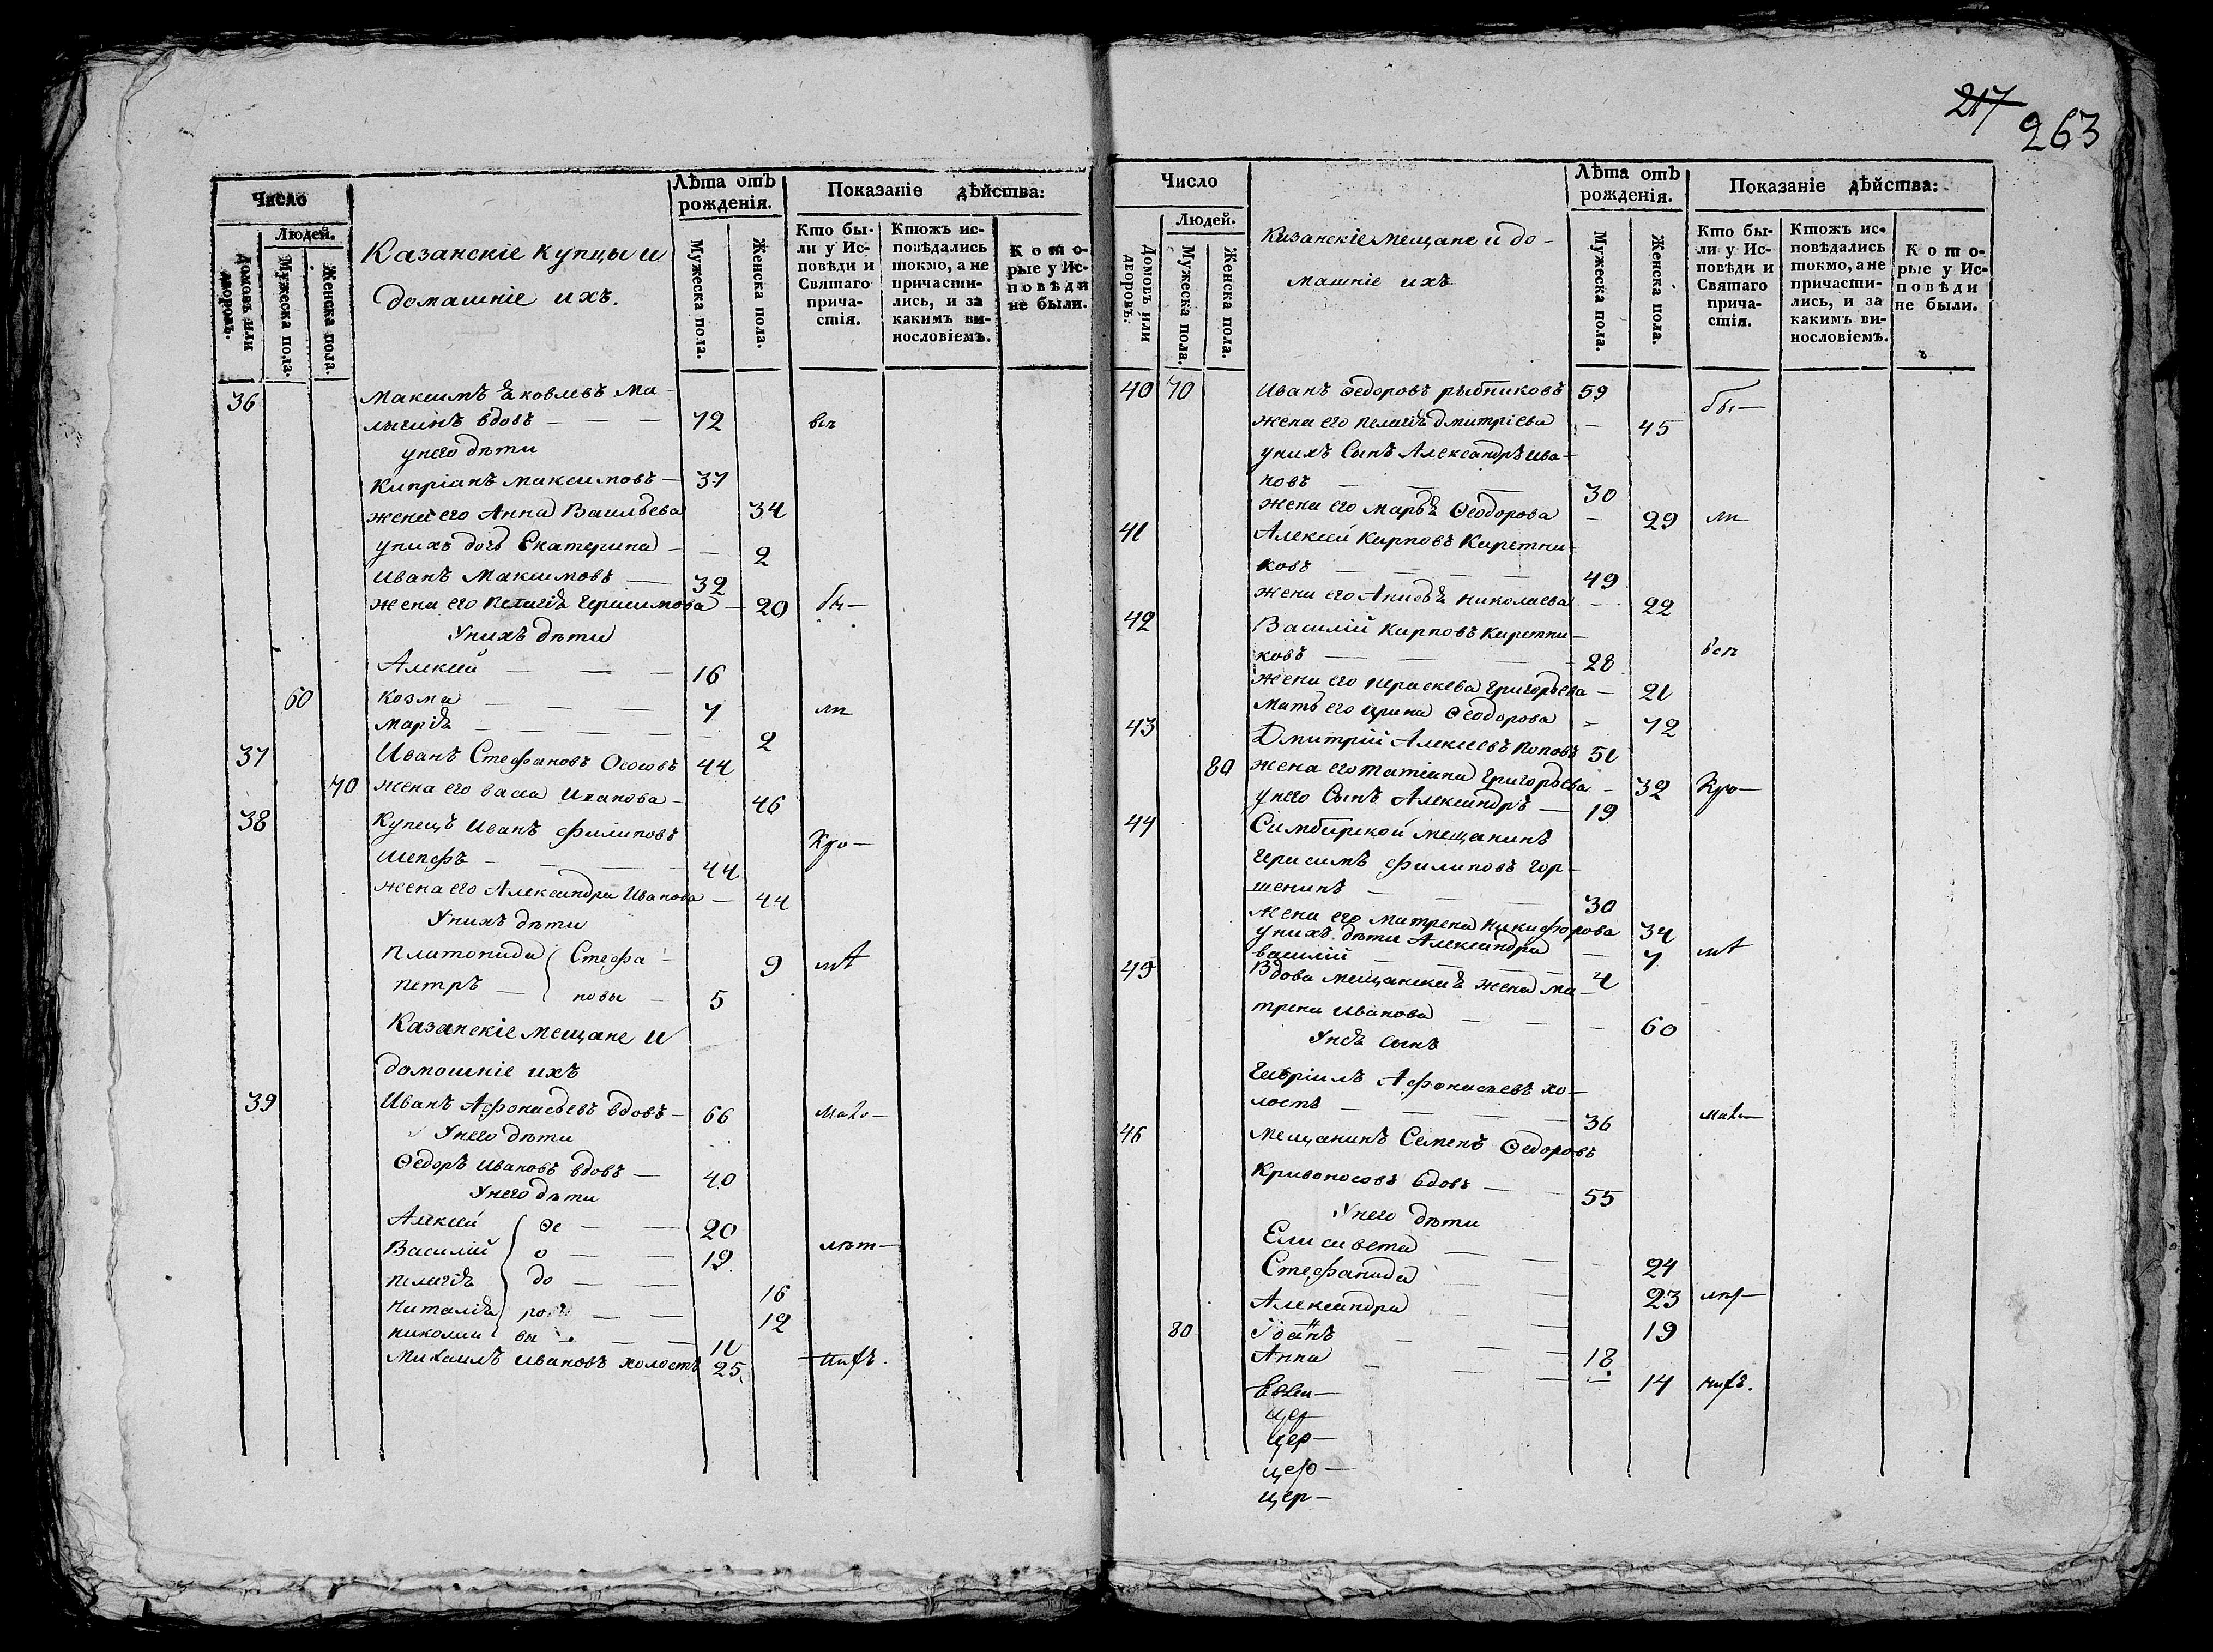 217
263
Число
Людей.
Домовъ или дворовъ.
Мужеска пола.
Женска пола.
Казанскіе купцы и
домашніе ихъ.
Лѣта отъ рожденія.
Мужеска пола.
Женска пола.
Показаніе дѣйства:
Кто бы-
ли у Ис-
повѣди и
Святаго
прича-
стія.
Ктожъ ис-
повѣдались
токмо, а не
причасти-
лись, и за
какимъ ви-
нословіемъ.
Кото-
рые у Ис-
повѣди
не были.
36 Максимъ Яковлевъ Ма-
лыгинъ вдовъ — — — 72 всъ
у него дѣти
Кипріанъ Максимовъ — 37
жена его Анна Васильева 34
у нихъ дочь Екатерина — — 2
Иванъ Максимовъ — 32
жена его Пелагія Герасимова — 20 бы—
У нихъ дѣти
Алексѣй — — — 16
60 Козма — — — 7 ли
Марія — — — — 2
37 Иванъ Стефановъ Ососовъ 44
70 жена его Васса Иванова — 46
38 Купецъ Иванъ Филиповъ
Шепфъ — — — 44 Кро—
жена его Александра Иванова — 44
У нихъ дѣти
Платонида Стефа — 9
Петръ — новы — 5
Казанскіе мещане и
домошніе ихъ
39 Иванъ Афонасьевъ вдовъ — 66
У него дѣти
Ѳедоръ Ивановъ вдовъ — 40
У него дѣти
Алексѣй Ѳе — — 20
Василій о — — 19 лѣт—
Пелагія до — — 16
Наталія ро — — 12
Николай вы — — 11
Михаилъ Ивановъ холостъ 25
Число
Людей.
Домовъ или дворовъ.
Мужеска пола.
Женска пола.
Казанскіе мещане и до-
машніе ихъ
Лѣта отъ рожденія.
Мужеска пола.
Женска пола.
Показаніе дѣйства:
Кто бы-
ли у Ис-
повѣди и
Святаго
прича-
стія.
Ктожъ ис-
повѣдались
токмо, а не
причасти-
лись, и за
какимъ ви-
нословіемъ.
Кото-
рые у Ис-
повѣди
не были.
40 70 Иванъ Ѳедоровъ Рыбниковъ 59 бы—
жена его Пелагія Дмитріева — 45
у нихъ Сынъ Александръ Ива-
новъ — — — 30
жена его Марья Ѳеодорова — 29 ли
41 Алексѣй Карповъ Каретни-
ковъ — — — — 49
жена его Анисья Николаева — 22
42 Василій Карповъ Каретни-
ковъ — — — 28 всъ
жена его Параскева Григорьева — 21
мать его Ирина Ѳеодорова — 72
43 Дмитрій Алексѣевъ Поповъ 51
80 жена его Татіана Григорьева — 32 Кро—
у него Сынъ Александръ — 19
44 Симбирской мещанинъ
Герасимъ Филиповъ Гор-
шенинъ — — — 30
жена его Матрена Никифорова 34
у нихъ дѣти Александра — 7
Василій — — — 4
45 Вдова мещанская жена Ма-
трена Иванова — — — 60
У нея сынъ
Гавріилъ Афонасьевъ хо-
лостъ — — — — 36
46 Мещанинъ Семенъ Ѳедоровъ
Кривоносовъ вдовъ — — 55
У него дѣти
Елисавета — — — 24
Стефанида — — 23
Александра — — 19
80 Іоаннъ — — — 18
Анна — — — 14
цер—
цер—
цер—
цер—